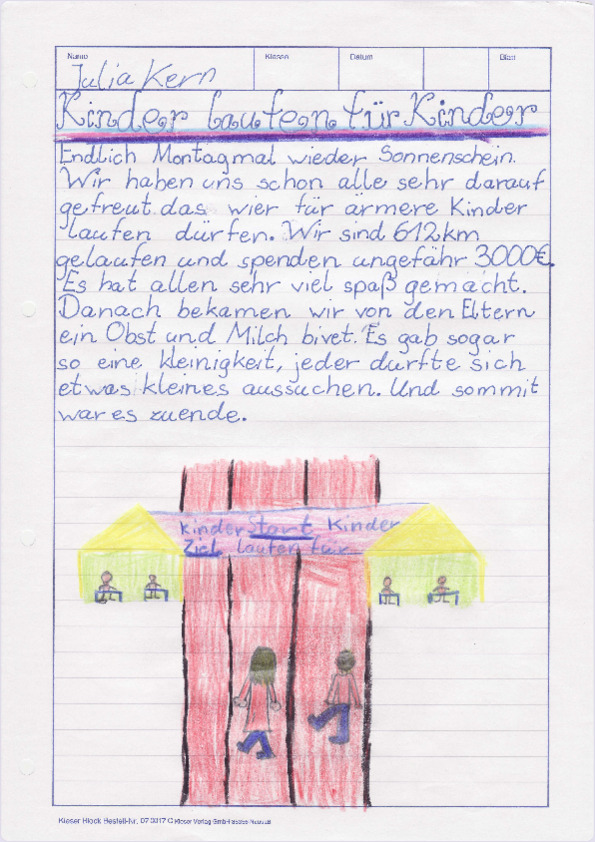 Name
Klasse
Datum
Blatt
Julia Kern
Kinder laufen für Kinder
Endlich Montagmal wieder Sonnenschein.
Wir haben uns schon alle sehr darauf
gefreut das wier für ärmere Kinder
laufen dürfen. Wir sind 612km
gelaufen und spenden ungefähr 3000€.
Es hat allen sehr viel spaß gemacht.
Danach bekamen wir von den Eltern
ein Obst und Milch bivet. Es gab sogar
so eine kleinigkeit, jeder durfte sich
etwas kleines aussuchen. Und sommit
war es zuende.
Kinder Start Kinder
Ziel laufen für
Kieser Block Bestell-Nr. 07 3317 © Kieser Verlag GmbH